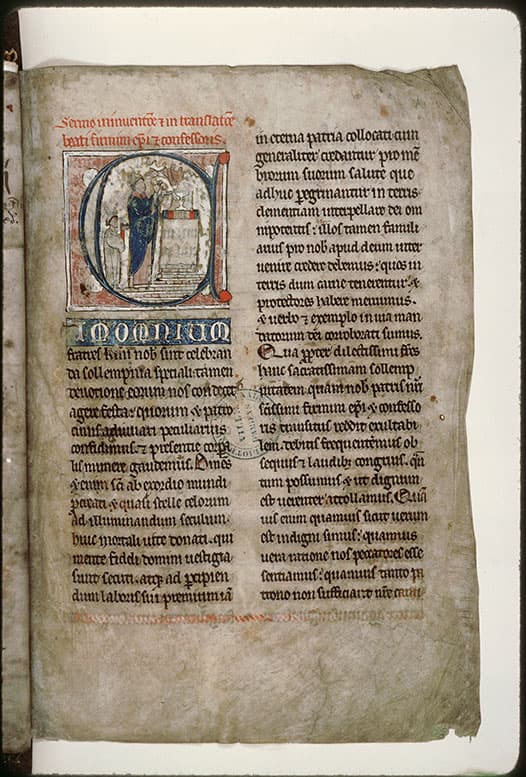 Sermo in inuentōe ⁊ in translatōe
beati firmini ep̄i ⁊ confessoris.
UM OMNIUM
fratres k̄mi nob̄ sint celebran
da sollempnia speciali tamen
deuotione eorum nos condecet
agere festa: quorum & patro
ciniis adiuuari peculiarius
confidimus: & presentie corpa
lis munere gaudemus. Omēs
& enim sc̄i ab exordio mundi
p̄creati & quasi stelle celorum
ad illuminandum seculum
huic mortali uite donati. qui
mente fideli domini uestigia
sunt secuti. atq; ad p̄cipien
dum laboris sui premium iā
in eterna patria collocati cum
generaliter credantur pro mē
brorum suorum salute que
adhuc p̄egrinantur in terris
clementiam interpellare dei om
nipotentis: illos tamen famili
arius pro nob̄ apud deum inter
uenire credere debemus: quos in
terris dum carne tenerentur: &
protectores habere meruimus.
& uerbo & exemplo in uia man
datorum dei corroborati sumus.
Qua p̄pter dilectissimi fr̄es
hanc sacratissimam sollemp
nitatem. quam nob̄ patris nr̄i
sc̄issimi firmini ep̄i & confesso
ris transitus reddit exultabi
lem. debitis frequentemus ob
sequiis & laudib; congruis. qn̄
tum possumus & ut dignum
est ueneranter attollamus. Quā
uis enim quamuis sicut uerum
est indigni simus: quamuis
ueni ratione nos peccatores esse
sentiamus: quamuis tanto pa
trono non sufficiant nr̄e